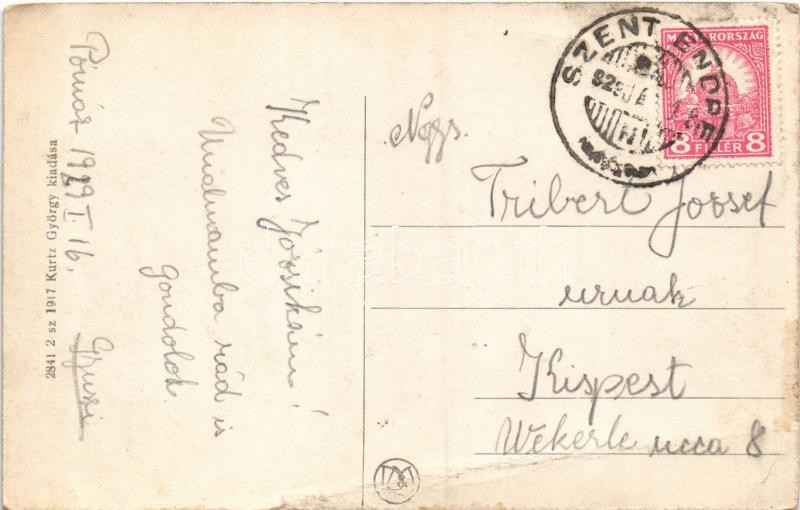 Pomáz 1929 I. 16.
2841 2 sz 1917 Kurtz György kiadása
Kedves Józsikám!
Utolmamba rád is
gondolok.
Gyuszi
SZENTENDRE
MAGYARORSZÁG
8 FILLÉR 8
Nags.
Tribert Jozsef
urnak
Kispest
Wekerle ucca 8